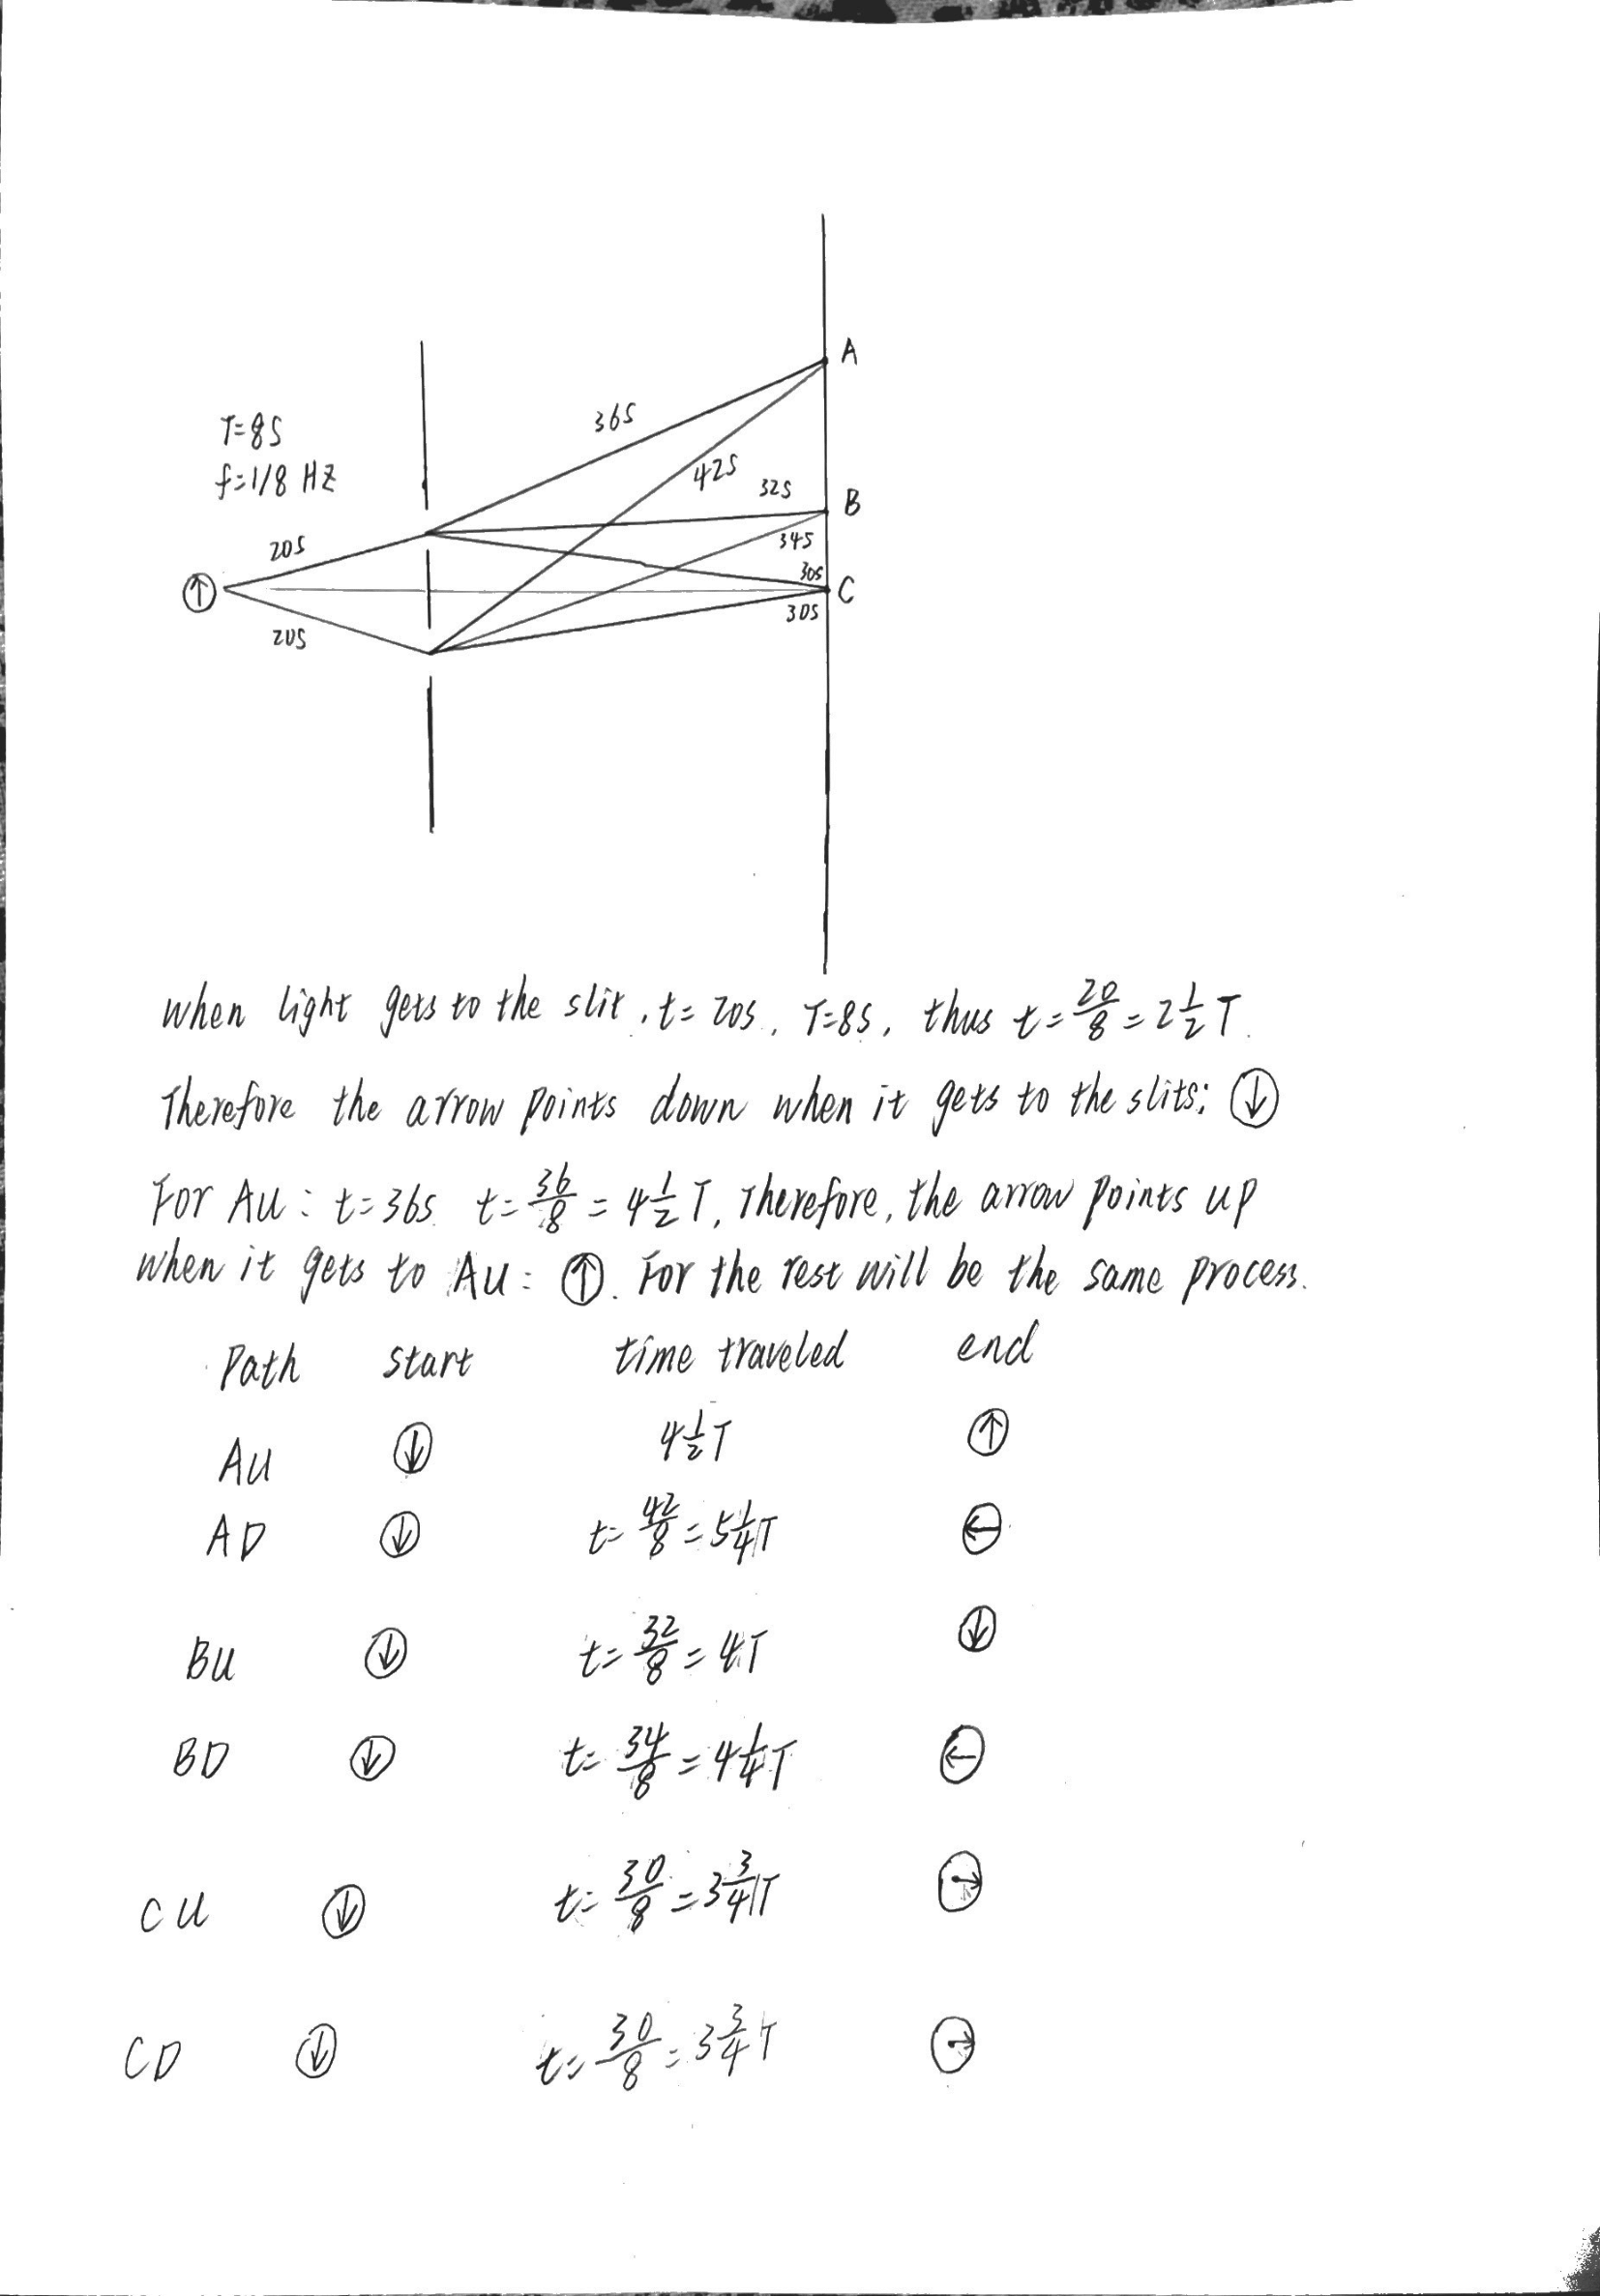 A
36S
T=8S
42S
f=1/8 HZ
32S
B
34S
20S
30S
↑
C
30S
20S
when light gets to the slit, t= 20S, T=8S, thus t= 20/8 = 2 1/2 T.
Therefore the arrow points down when it gets to the slits: ↓
For Au: t=36S t= 36/8 = 4 1/2 T, Therefore, the arrow points up
when it gets to Au: ↑. For the rest will be the same process.
Path start time traveled end
Au ↓ 4 1/2 T ↑
AD ↓ t= 42/8 = 5 1/4 T ←
Bu ↓ t= 32/8 = 4T ↓
BD ↓ t= 34/8 = 4 1/4 T ←
Cu ↓ t= 30/8 = 3 3/4 T →
CD ↓ t= 30/8 = 3 3/4 T →